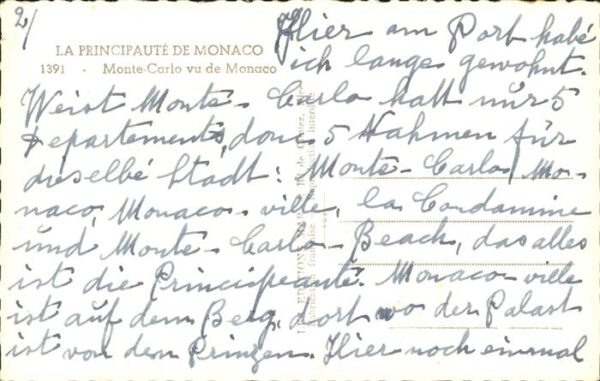 2/
Hier am Port habé
ich lange gewohnt.
LA PRINCIPAUTÉ DE MONACO
1391 - Monte-Carlo vu de Monaco
Weist Monte-Carlo hatt nur 5
Departements, donc 5 Nahmen für
dieselbé Stadt: Monte-Carlo, Mo-
naco, Monaco-ville, la Condamine
und Monte-Carlo-Beach, das alles
ist die Principeauté. Monaco-ville
ist auf dem Berg, dort wo der Palast
ist von dem Prinzen. Hier noch einmal